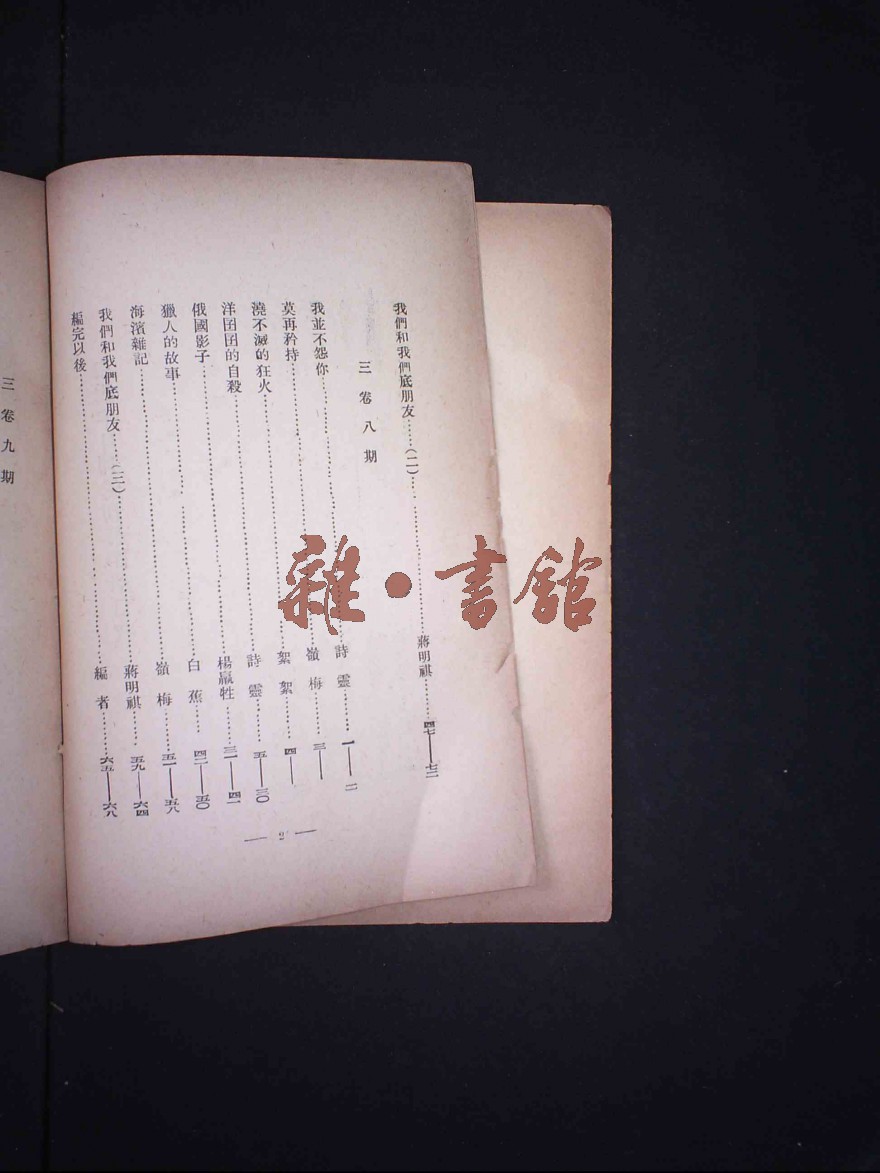 我們和我們底朋友……(二)……蔣明祺……四七——七二
三卷八期
我並不怨你……詩靈……一——二
莫再矜持……嶺梅……三——
澆不滅的狂火……絮絮……四——
洋囝囝的自殺……詩靈……五——三〇
俄國影子……楊贏牲……三一——四一
獵人的故事……白蕉……四二——五〇
海濱雜記……嶺梅……五一——五八
我們和我們底朋友……(三)……蔣明祺……五九——六四
編完以後……編者……六五——六八
— 2 —
三卷九期
雜·書館